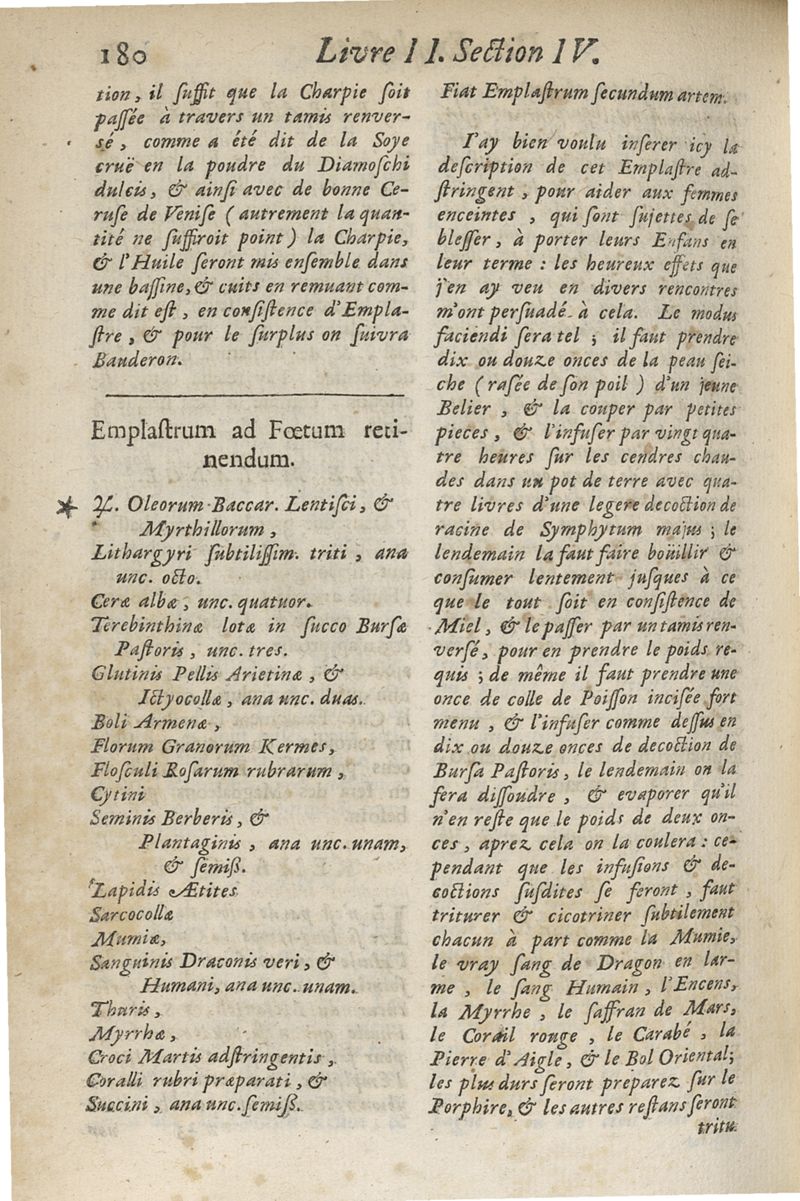 180 Livre II. Section IV.
tion, il ſuffit que la Charpie ſoit
paſſée à travers un tamis renver-
sé, comme a été dit de la Soye
cruë en la poudre du Diamoſchi
dulcis, & ainſi avec de bonne Ce-
ruſe de Veniſe ( autrement la quan-
tité ne ſuffiroit point ) la Charpie,
& l'Huile ſeront mis enſemble dans
une baſſine, & cuits en remuant com-
me dit eſt, en conſiſtence d'Empla-
ſtre, & pour le ſurplus on ſuivra
Bauderon.
Emplaſtrum ad Fœtum reti-
nendum.
℞. Oleorum Baccar. Lentiſci, &
Myrthillorum,
Lithargyri ſubtiliſſim. triti, ana
unc. octo.
Ceræ albæ, unc. quatuor.
Terebinthinæ lotæ in ſucco Burſæ
Paſtoris, unc. tres.
Glutinis Pellis Arietinæ, &
Ictyocollæ, ana unc. duas.
Boli Armenæ,
Florum Granorum Kermes,
Floſculi Roſarum rubrarum,
Cytini
Seminis Berberis, &
Plantaginis, ana unc. unam,
& ſemiß.
Lapidis Ætites
Sarcocollæ
Mumiæ,
Sanguinis Draconis veri, &
Humani, ana unc. unam.
Thuris,
Myrrhæ,
Croci Martis adſtringentis,
Coralli rubri præparati, &
Succini, ana unc. ſemiß.
Fiat Emplaſtrum ſecundum artem.
I'ay bien voulu inſerer icy la
deſcription de cet Emplaſtre ad-
ſtringent, pour aider aux femmes
enceintes, qui ſont ſujettes de ſe
bleſſer, à porter leurs Enfans en
leur terme : les heureux effets que
j'en ay veu en divers rencontres
m'ont perſuadé à cela. Le modus
faciendi ſera tel ; il faut prendre
dix ou douze onces de la peau ſei-
che ( raſée de ſon poil ) d'un jeune
Belier, & la couper par petites
pieces, & l'infuſer par vingt qua-
tre heures ſur les cendres chau-
des dans un pot de terre avec qua-
tre livres d'une legere decoction de
racine de Symphytum majus ; le
lendemain la faut faire boüillir &
conſumer lentement juſques à ce
que le tout ſoit en conſiſtence de
Miel, & le paſſer par un tamis ren-
verſé, pour en prendre le poids re-
quis ; de même il faut prendre une
once de colle de Poiſſon inciſée fort
menu, & l'infuſer comme deſſus en
dix ou douze onces de decoction de
Burſa Paſtoris, le lendemain on la
fera diſſoudre, & evaporer qu'il
n'en reſte que le poids de deux on-
ces, aprez cela on la coulera : ce-
pendant que les infuſions & de-
coctions ſuſdites ſe feront, faut
triturer & cicotriner ſubtilement
chacun à part comme la Mumie,
le vray ſang de Dragon en lar-
me, le ſang Humain, l'Encens,
la Myrrhe, le ſaffran de Mars,
le Corail rouge, le Carabé, la
Pierre d'Aigle, & le Bol Oriental;
les plus durs ſeront preparez ſur le
Porphire, & les autres reſtans ſeront
tritu-